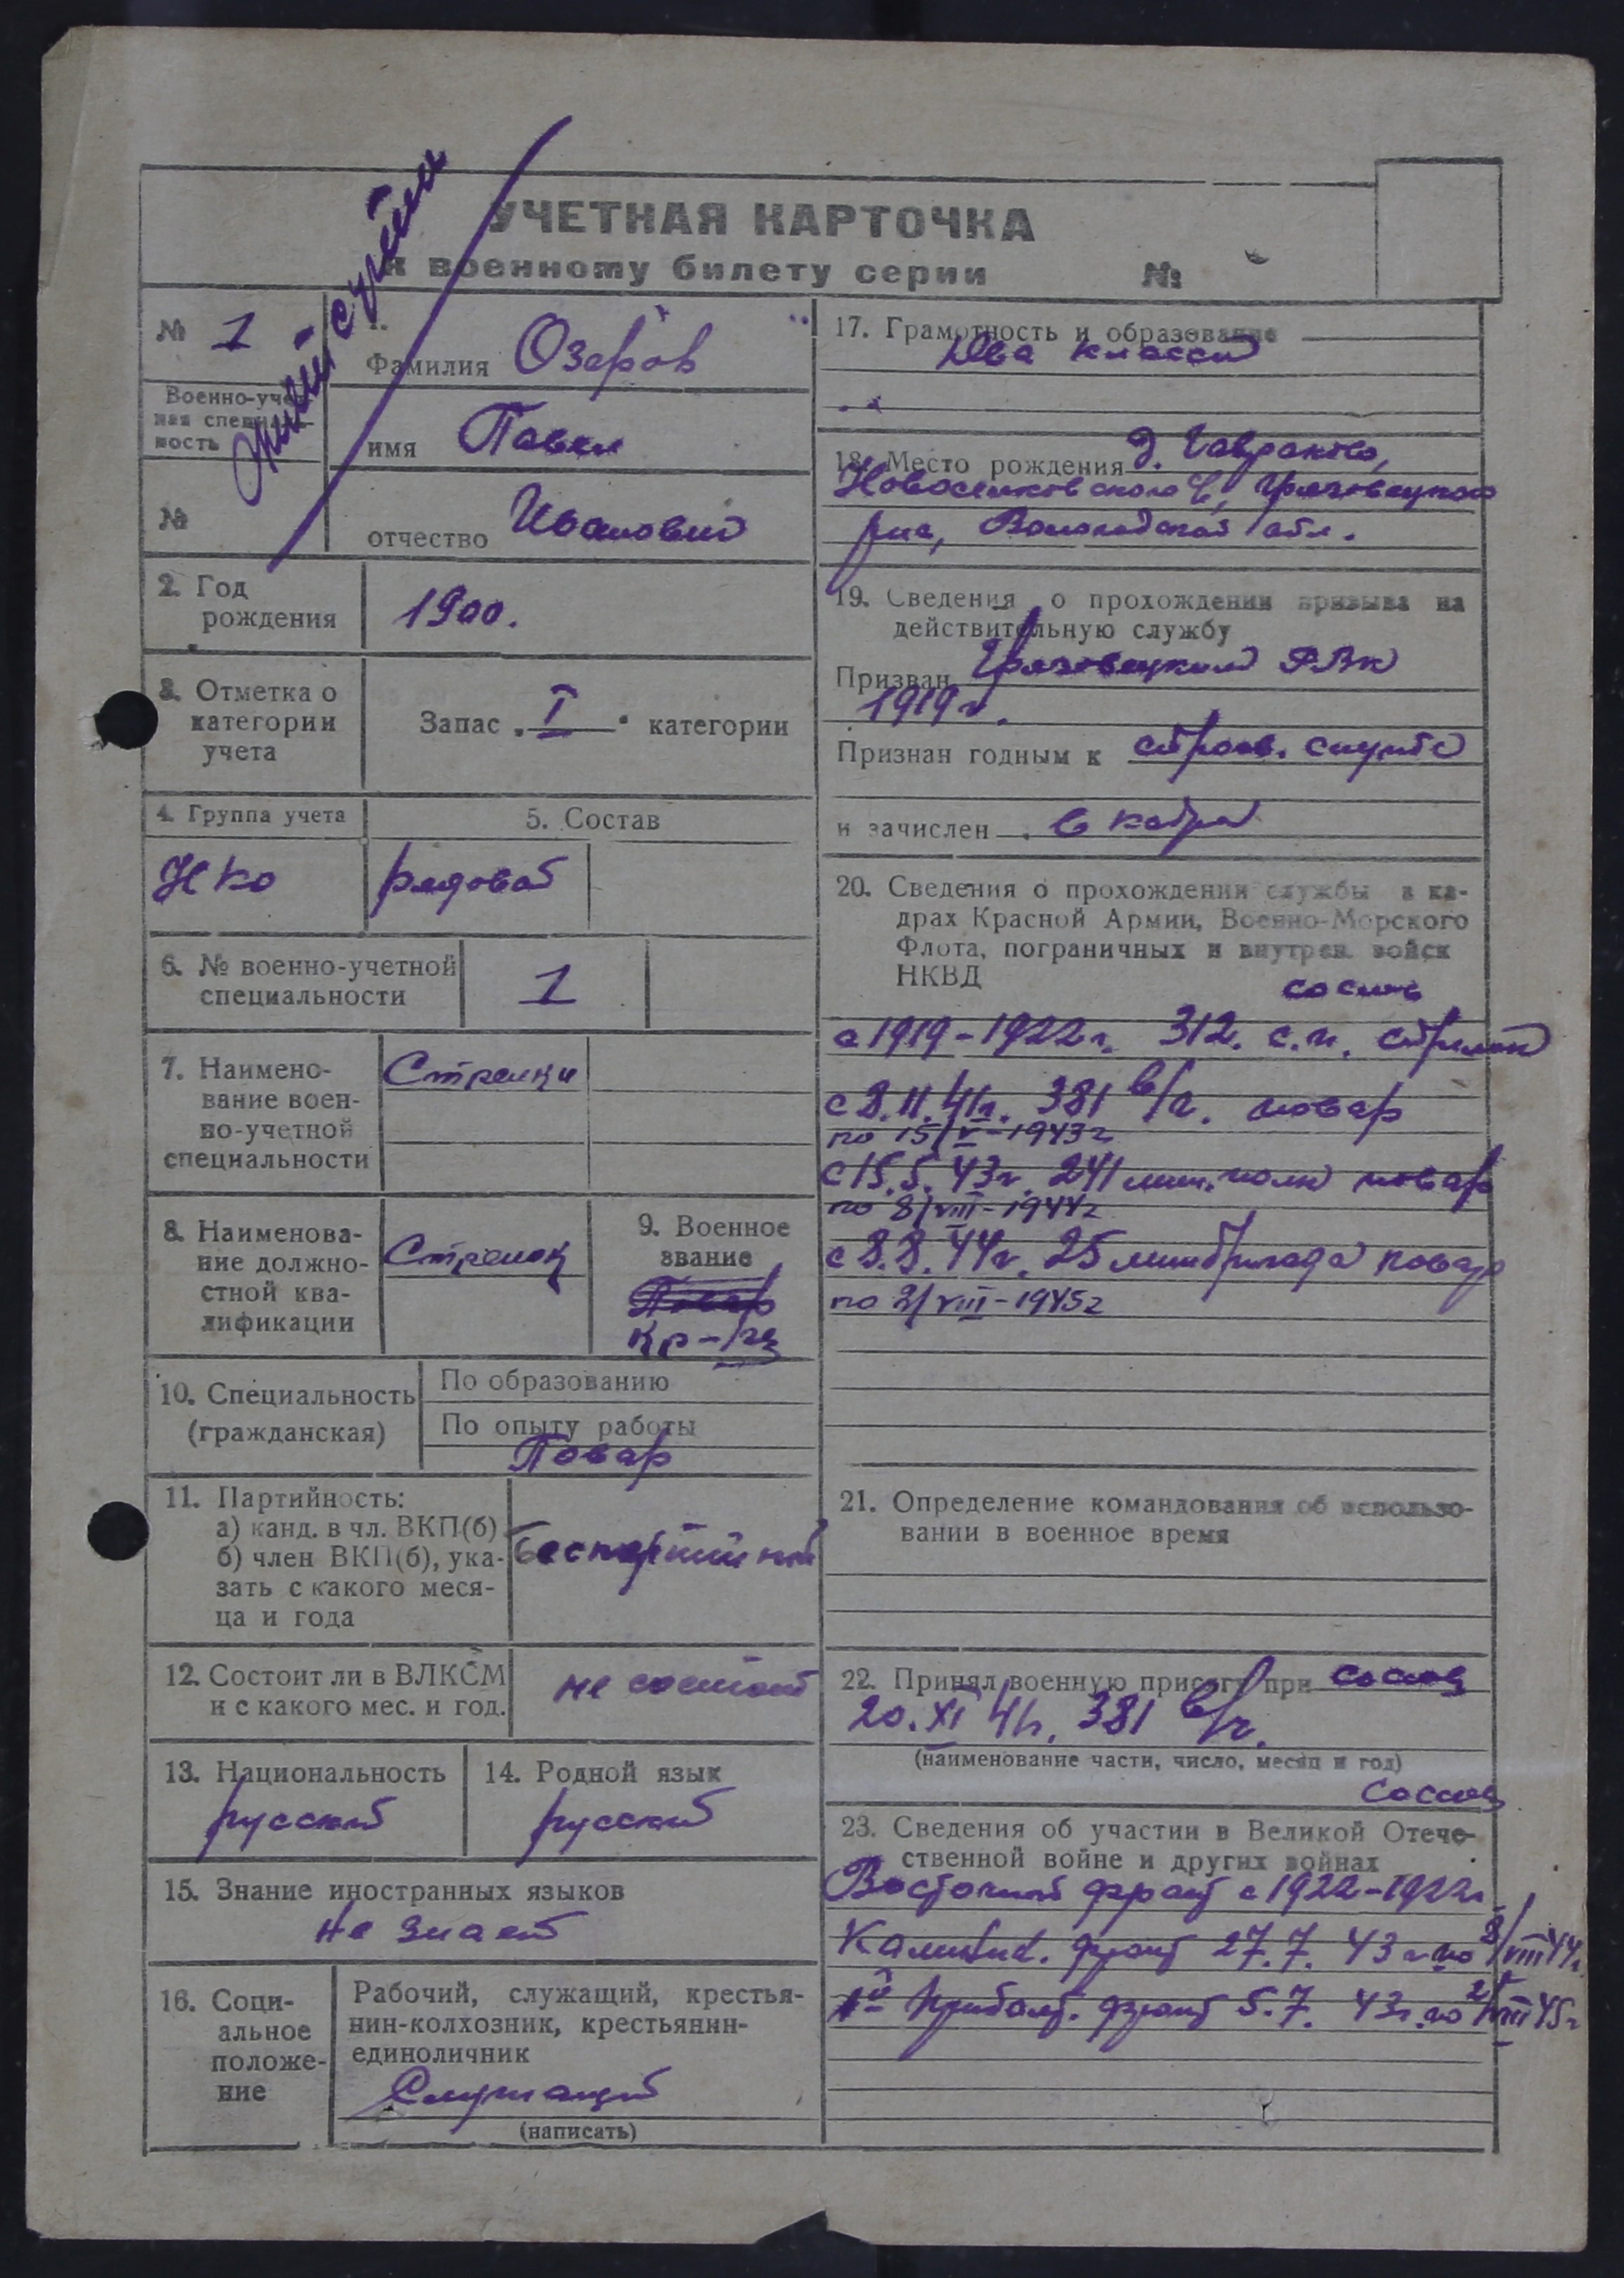 УЧЕТНАЯ КАРТОЧКА
к военному билету серии №
№ 1
Военно-учет-
ная специаль-
ность
№
Фамилия Озеров
имя Павел
отчество Иванович
2. Год
рождения
1900.
3. Отметка о
категории
учета
Запас I категории
4. Группа учета
НКО
5. Состав
рядовой
6. № военно-учетной
специальности
1
7. Наимено-
вание воен-
но-учетной
специальности
Стрелки
8. Наименова-
ние должно-
стной ква-
лификации
Стрелок
9. Военное
звание
Повар
кр-ец
10. Специальность
(гражданская)
По образованию
По опыту работы
Повар
11. Партийность:
а) канд. в чл. ВКП(б)
б) член ВКП(б), ука-
зать с какого меся-
ца и года
Беспартийный
12. Состоит ли в ВЛКСМ
и с какого мес. и год.
не состоит
13. Национальность
русский
14. Родной язык
русский
15. Знание иностранных языков
не знает
16. Соци-
альное
положе-
ние
Рабочий, служащий, крестья-
нин-колхозник, крестьянин-
единоличник
Служащий
(написать)
17. Грамотность и образование
Два класса
18. Место рождения д.
Новоселковского с/с, Грязовецкого
р-на, Вологодской обл.
19. Сведения о прохождении призыва на
действительную службу
Призван Грязовецким РВК
1919 г.
Признан годным к строев. службе
и зачислен в кадры
20. Сведения о прохождении службы в ка-
драх Красной Армии, Военно-Морского
Флота, пограничных и внутрен. войск
НКВД
со слов
с 1919-1922 г. 312. с.п. стрелок
с 8.11.41г. 381 в/ч. повар
по 15/V-1943г
с 15.5.43г. 241 мин. полк повар
по 8/VIII-1944г
с 8.8.44г. 25 минбригада повар
по 2/VIII-1945г
21. Определение командования об использо-
вании в военное время
22. Принял военную присягу при со слов
20.XI 41г. 381 в/ч.
(наименование части, число, месяц и год)
со слов
23. Сведения об участии в Великой Отече-
ственной войне и других войнах
Восточный фронт с 1922-1922г.
Калинин. фронт 27.7.43г по 8/VIII 44г.
1й Прибалт. фронт 5.7.43г. по 2/VIII 45г